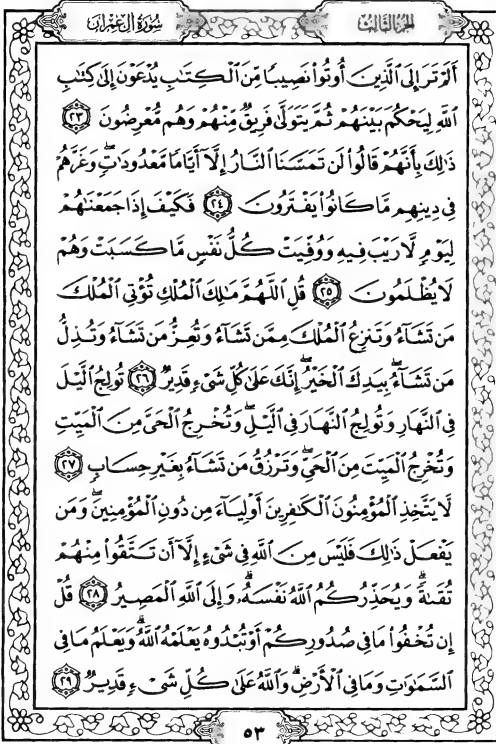 سُورَةُ آلِ عِمْرَانَ الجُزءُ الثَّالِثُ
أَلَمْ تَرَ إِلَى ٱلَّذِينَ أُوتُوا۟ نَصِيبًا مِّنَ ٱلْكِتَٰبِ يُدْعَوْنَ إِلَىٰ كِتَٰبِ
ٱللَّهِ لِيَحْكُمَ بَيْنَهُمْ ثُمَّ يَتَوَلَّىٰ فَرِيقٌ مِّنْهُمْ وَهُم مُّعْرِضُونَ ٢٣
ذَٰلِكَ بِأَنَّهُمْ قَالُوا۟ لَن تَمَسَّنَا ٱلنَّارُ إِلَّآ أَيَّامًا مَّعْدُودَٰتٍ ۖ وَغَرَّهُمْ
فِى دِينِهِم مَّا كَانُوا۟ يَفْتَرُونَ ٢٤ فَكَيْفَ إِذَا جَمَعْنَٰهُمْ
لِيَوْمٍ لَّا رَيْبَ فِيهِ وَوُفِّيَتْ كُلُّ نَفْسٍ مَّا كَسَبَتْ وَهُمْ
لَا يُظْلَمُونَ ٢٥ قُلِ ٱللَّهُمَّ مَٰلِكَ ٱلْمُلْكِ تُؤْتِى ٱلْمُلْكَ
مَن تَشَآءُ وَتَنزِعُ ٱلْمُلْكَ مِمَّن تَشَآءُ وَتُعِزُّ مَن تَشَآءُ وَتُذِلُّ
مَن تَشَآءُ ۖ بِيَدِكَ ٱلْخَيْرُ ۖ إِنَّكَ عَلَىٰ كُلِّ شَىْءٍ قَدِيرٌ ٢٦ تُولِجُ ٱلَّيْلَ
فِى ٱلنَّهَارِ وَتُولِجُ ٱلنَّهَارَ فِى ٱلَّيْلِ ۖ وَتُخْرِجُ ٱلْحَىَّ مِنَ ٱلْمَيِّتِ
وَتُخْرِجُ ٱلْمَيِّتَ مِنَ ٱلْحَىِّ ۖ وَتَرْزُقُ مَن تَشَآءُ بِغَيْرِ حِسَابٍ ٢٧
لَّا يَتَّخِذِ ٱلْمُؤْمِنُونَ ٱلْكَٰفِرِينَ أَوْلِيَآءَ مِن دُونِ ٱلْمُؤْمِنِينَ ۖ وَمَن
يَفْعَلْ ذَٰلِكَ فَلَيْسَ مِنَ ٱللَّهِ فِى شَىْءٍ إِلَّآ أَن تَتَّقُوا۟ مِنْهُمْ
تُقَىٰةً ۗ وَيُحَذِّرُكُمُ ٱللَّهُ نَفْسَهُۥ ۗ وَإِلَى ٱللَّهِ ٱلْمَصِيرُ ٢٨ قُلْ
إِن تُخْفُوا۟ مَا فِى صُدُورِكُمْ أَوْ تُبْدُوهُ يَعْلَمْهُ ٱللَّهُ ۗ وَيَعْلَمُ مَا فِى
ٱلسَّمَٰوَٰتِ وَمَا فِى ٱلْأَرْضِ ۗ وَٱللَّهُ عَلَىٰ كُلِّ شَىْءٍ قَدِيرٌ ٢٩
٥٣